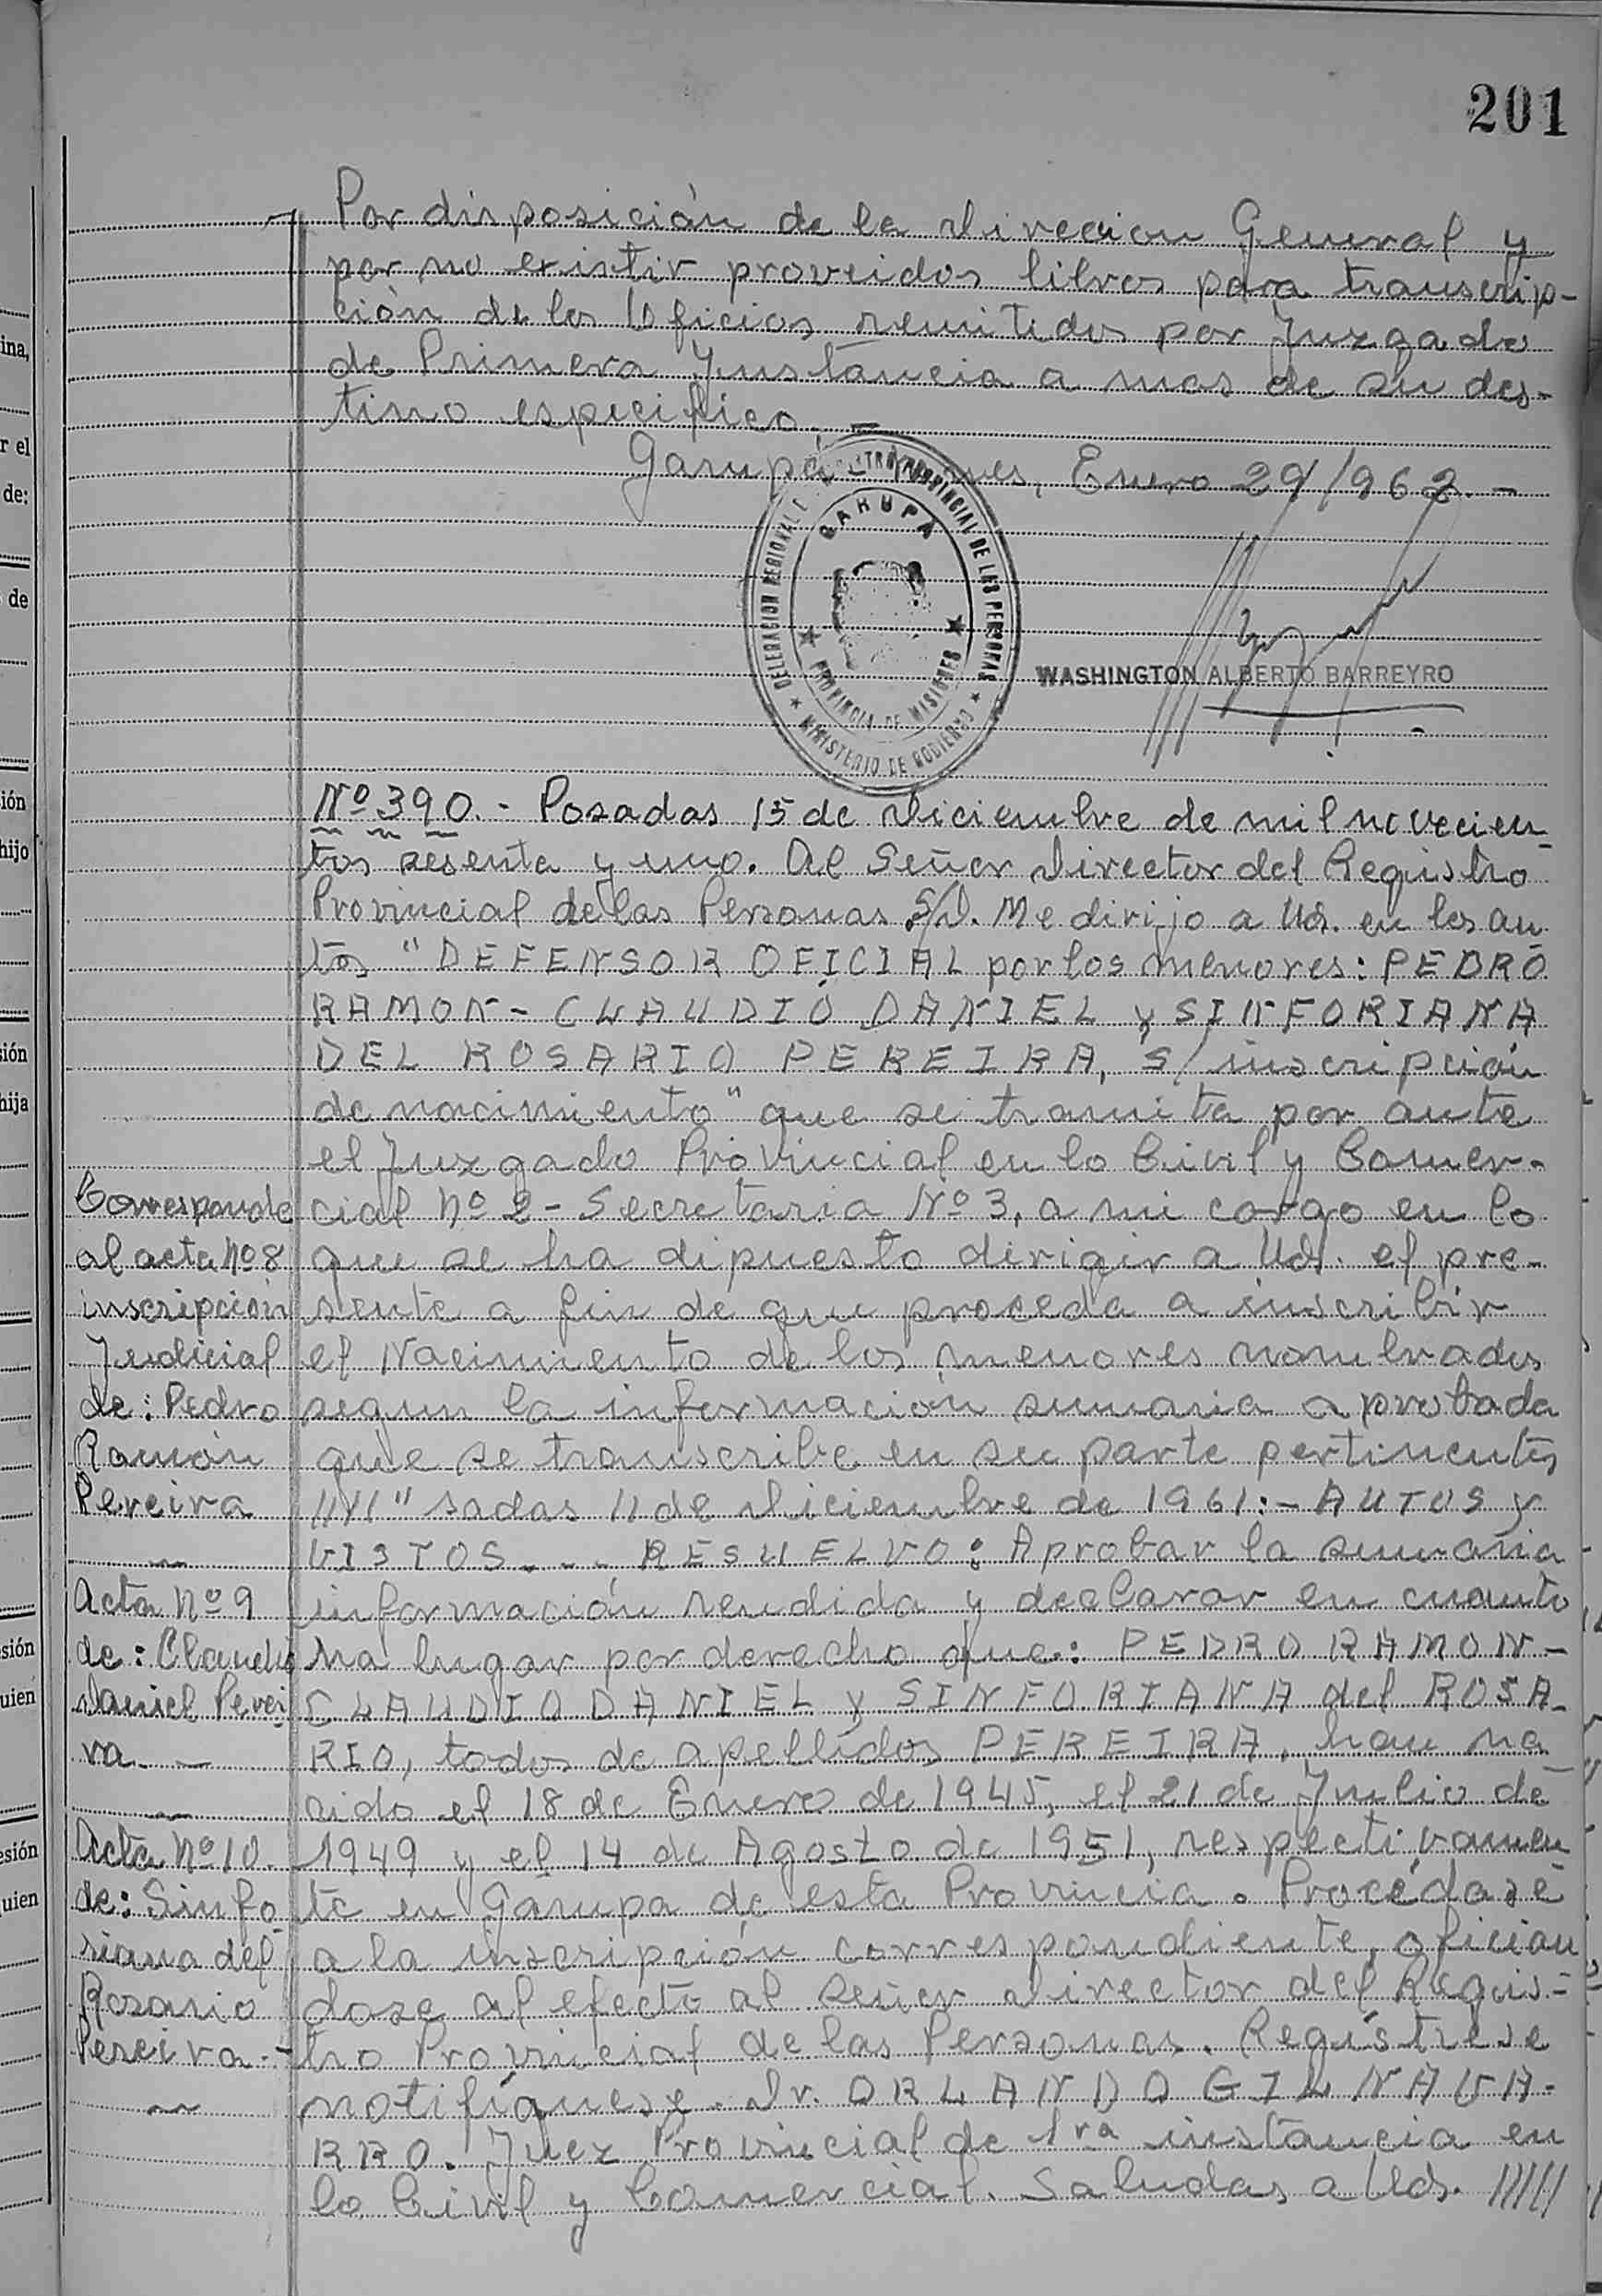 201
Por disposición de la Direccion General y
por no existir proveidos libros para transcrip-
ción de los Oficios remitidos por Juzgado
de Primera Instancia a mas de su des-
tino especifico.-
Garupá, Enero 29/962.-
GARUPA
PROVINCIA DE MISIONES
MINISTERIO DE GOBIERNO
DELEGACION REGIONAL PROVINCIAL DE LAS PERSONAS
WASHINGTON ALBERTO BARREYRO
Nº 390.- Posadas 15 de Diciembre de mil novecien-
tos sesenta y uno. Al Señor Director del Registro
Provincial de las Personas S/D. Me dirijo a Ud. en los au-
tos "DEFENSOR OFICIAL por los menores: PEDRO
RAMON - CLAUDIO DANIEL y SINFORIANA
DEL ROSARIO PEREIRA, S/ inscripción
de nacimiento" que se tramita por ante
el Juzgado Provincial en lo Civil y Comer-
cial Nº 2 - Secretaria Nº 3, a mi cargo en lo
que se ha dipuesto dirigir a Ud. el pre-
sente a fin de que proceda a inscribir
el Nacimiento de los menores nombrados
segun la información sumaria aprobada
que se transcribe en su parte pertinente,
"sadas 11 de Diciembre de 1961:- AUTOS y
VISTOS... RESUELVO: Aprobar la sumaria
información rendida y declarar en cuanto
ha lugar por derecho que: PEDRO RAMON -
CLAUDIO DANIEL y SINFORIANA del ROSA-
RIO, todos de apellidos PEREIRA, han na-
cido el 18 de Enero de 1945, el 21 de Julio de
1949 y el 14 de Agosto de 1951, respectivamen-
te en Garupa de esta Provincia. Procédase
a la inscripción correspondiente, oficián
dose al efecto al señor Director del Regis-
tro Provincial de las Personas. Regístrese
notifíquese. Dr. ORLANDO GIL NAVA-
RRO. Juez Provincial de 1ra instancia en
lo Civil y Comercial. Saludas a Ud. /////
Corresponde
al acta Nº 8
inscripción
Judicial
de: Pedro
Ramón
Pereira
Acta Nº 9
de: Claudio
Daniel Perei
ra.-
Acta Nº 10.
de: Sinfo
riana del
Rosario
Pereira.-
ina,
r el
de:
de
ión
hijo
sión
hija
sión
uien
esión
quien